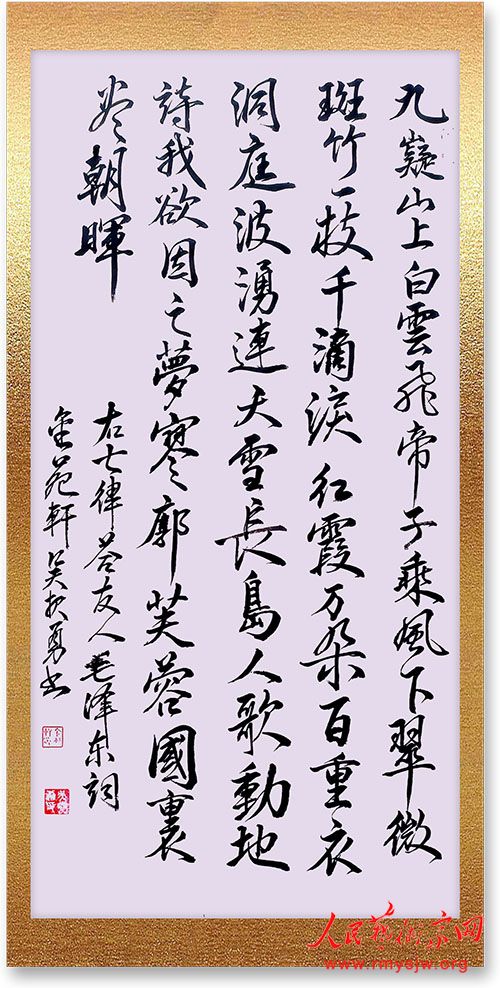 九嶷山上白雲飛帝子乘風下翠微
斑竹一枝千滴淚紅霞万朵百重衣
洞庭波湧連天雪長島人歌動地
詩我欲因之夢寥廓芙蓉國裏
盡朝暉
右七律答友人毛泽东詞
金苑軒吴振勇书
人民艺术家网
www.rmysjw.org